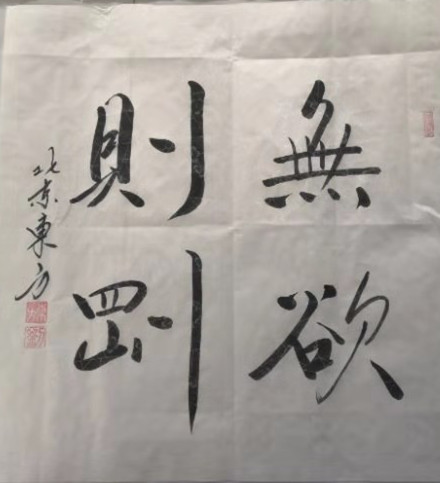 無欲
則剛
北京東方